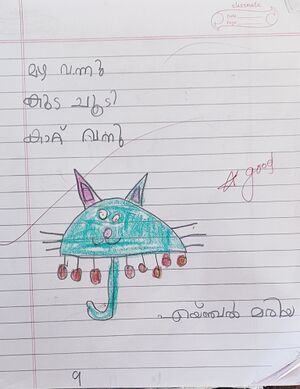 classmate
Date
Page
മഴ വന്നു
കുട ചൂടി
കാറ്റ് വന്നു
good
എയ്ഞ്ചൽ മരിയ
9